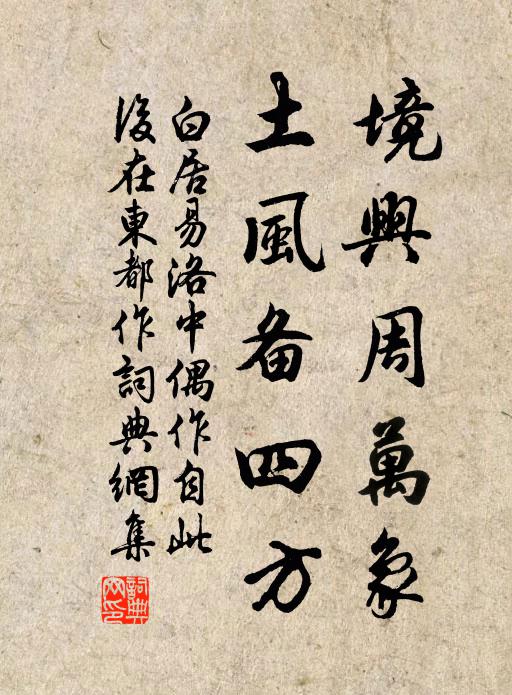 境興周萬象
土風备四方
白居易洛中偶作自此
後在東都作詞典網集
詞典网印